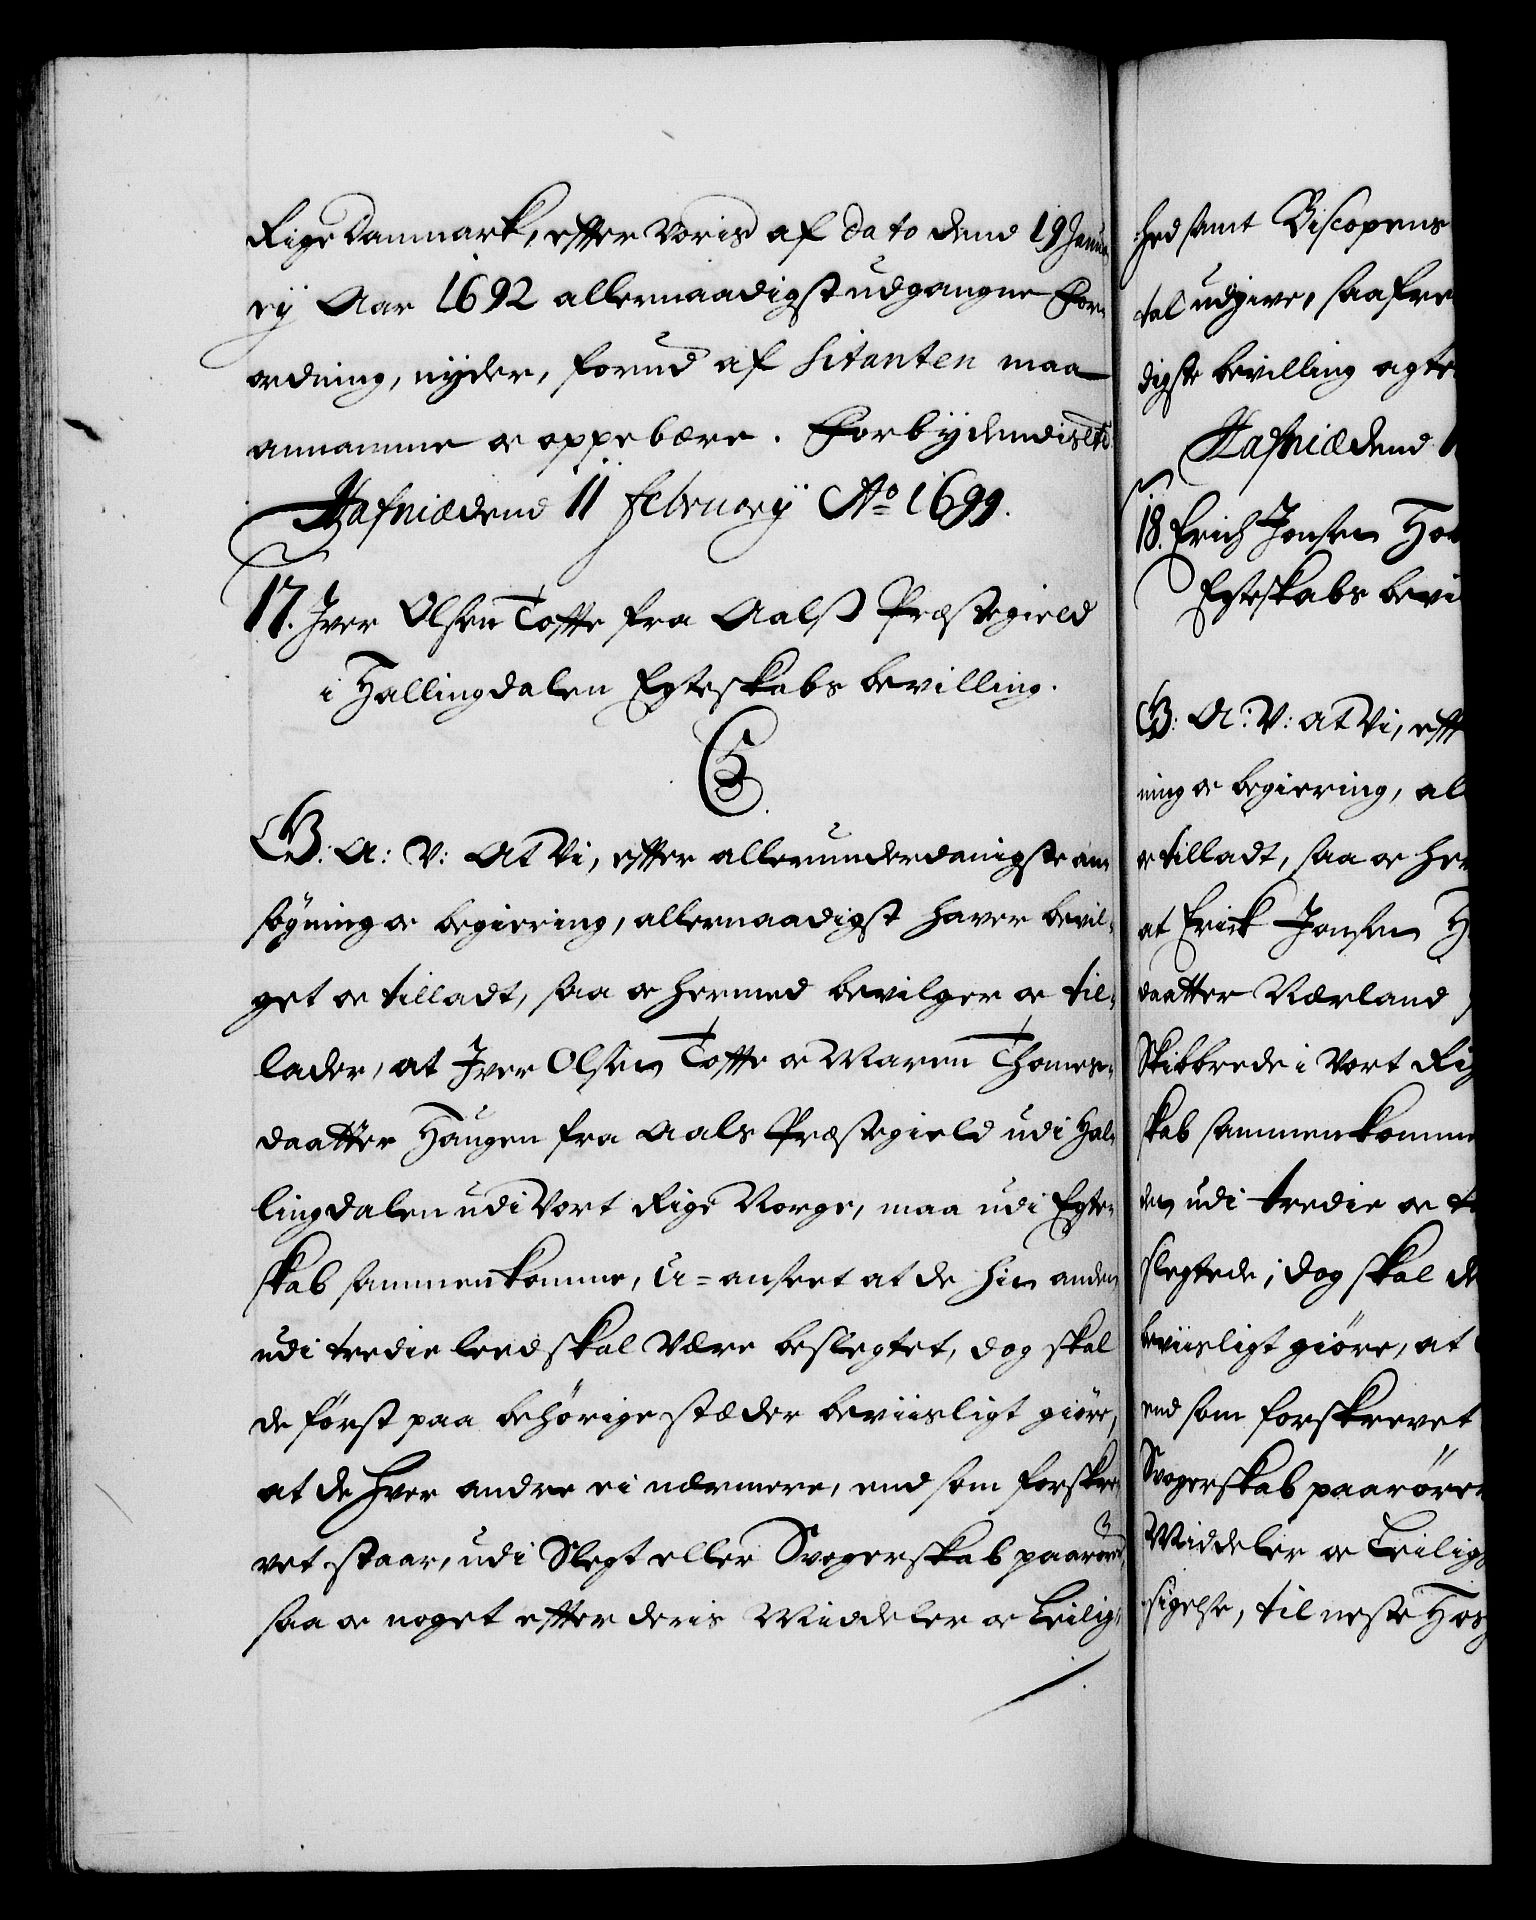 Rige Danmark, efter Voris af dato dend 19 Janua
rij Aar 1692 allernaadigst udgangne For-
ordning, nyder, forud af Citanten maa
annamme oc oppebære. Forbydendis etc
Hafniæ dend 11 februarij Ao 1699.
17. Iver Olsen Toffte fra Aals Præstegield
i Hallingdalen Egteskabs bevilling.
C5
G: A: V: At Vi, efter allerunderdanigste an-
søgning oc begiering, allernaadigst haver bevil-
get oc tilladt, saa oc hermed bevilger oc til-
lader, at Iver Olsen Toffte oc Maren Thomes-
daatter Haugen fra Aals Præstegield udi Hal-
lingdalen udi Vort Rige Norge, maa udi Egte-
skab sammenkomme, U-anseet at de hin anden
udi tredie leed skal være beslegtet, dog skal
de først paa behørige stæder beviisligt giøre,
at de hver andre ei nærmere, end som forskre-
vet staar, udi Slegt eller Svogerskab paarører,
saa oc noget efter deris Middeler oc Leilig-
hed samt Biscopens
tal udgive, saafre
digste bevilling agte
Hafniæ dend
18. Erich Jonsen
Egteskabs bevi
G: A: V: At Vi, eff
ning oc begiering, al
oc tilladt, saa oc her
at Erick Jonsen
daatter Nærland
Skibbrede i Vort Rig
skab sammenkomme
den udi tredie oc
slegtede; dog skal de
beviisligt giøre, at
end som forskrevet
Svogerskab paarører
Middeler oc Leilig
sigelse, til neste Hos